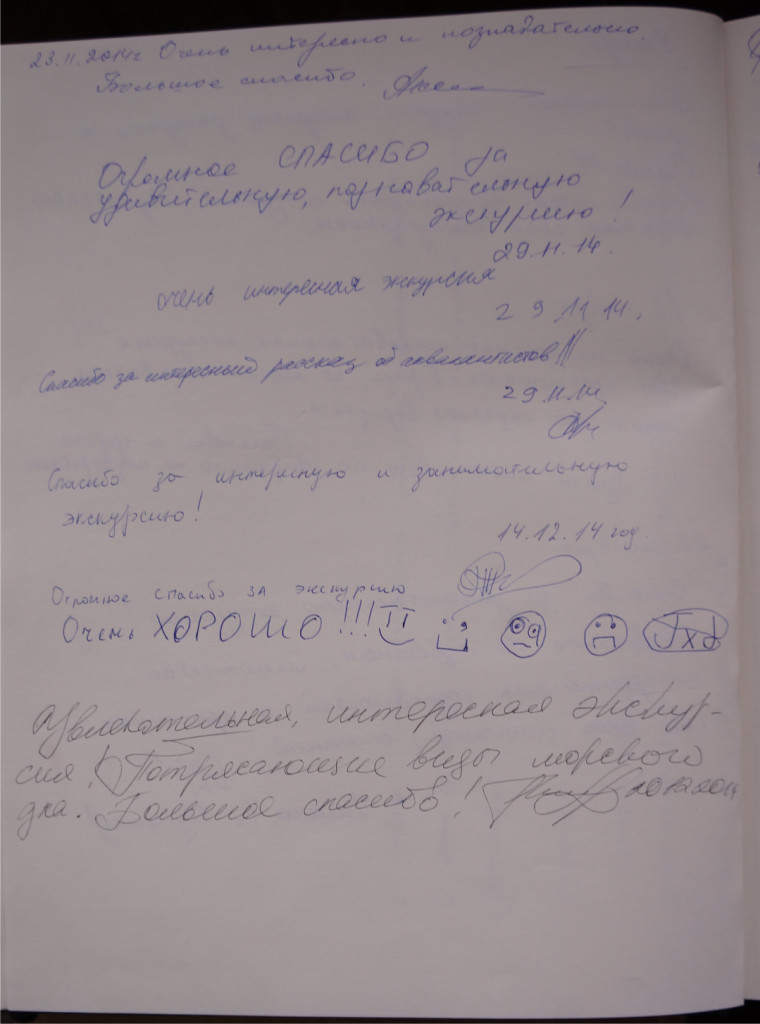 23.11.2014г Очень интересно и познавательно.
Большое спасибо.
Огромное СПАСИБО за
удивительную, познавательную
экскурсию!
29.11.14.
очень интересная экскурсия
29 11 14.
Спасибо за интересный рассказ об аквалангистов!!!
29.11.14.
Спасибо за интересную и занимательную
экскурсию!
14.12.14 год.
Огромное спасибо за экскурсию
Очень ХОРОШО!!!
Увлекательная, интересная экскур-
сия! Потрясающие виды морского
дна. Большое спасибо! 20.12.2014